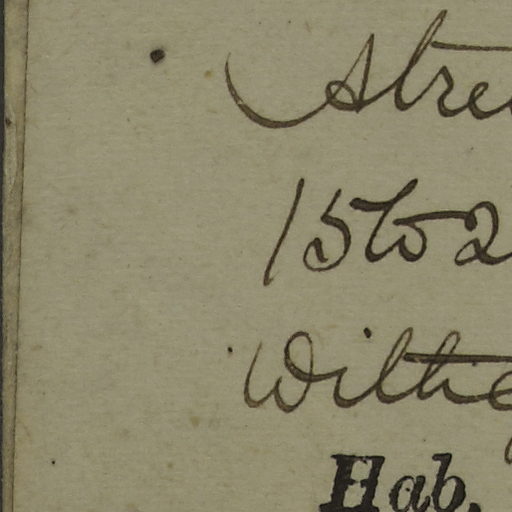 Stre
15 to 2
Wilti
Hab.